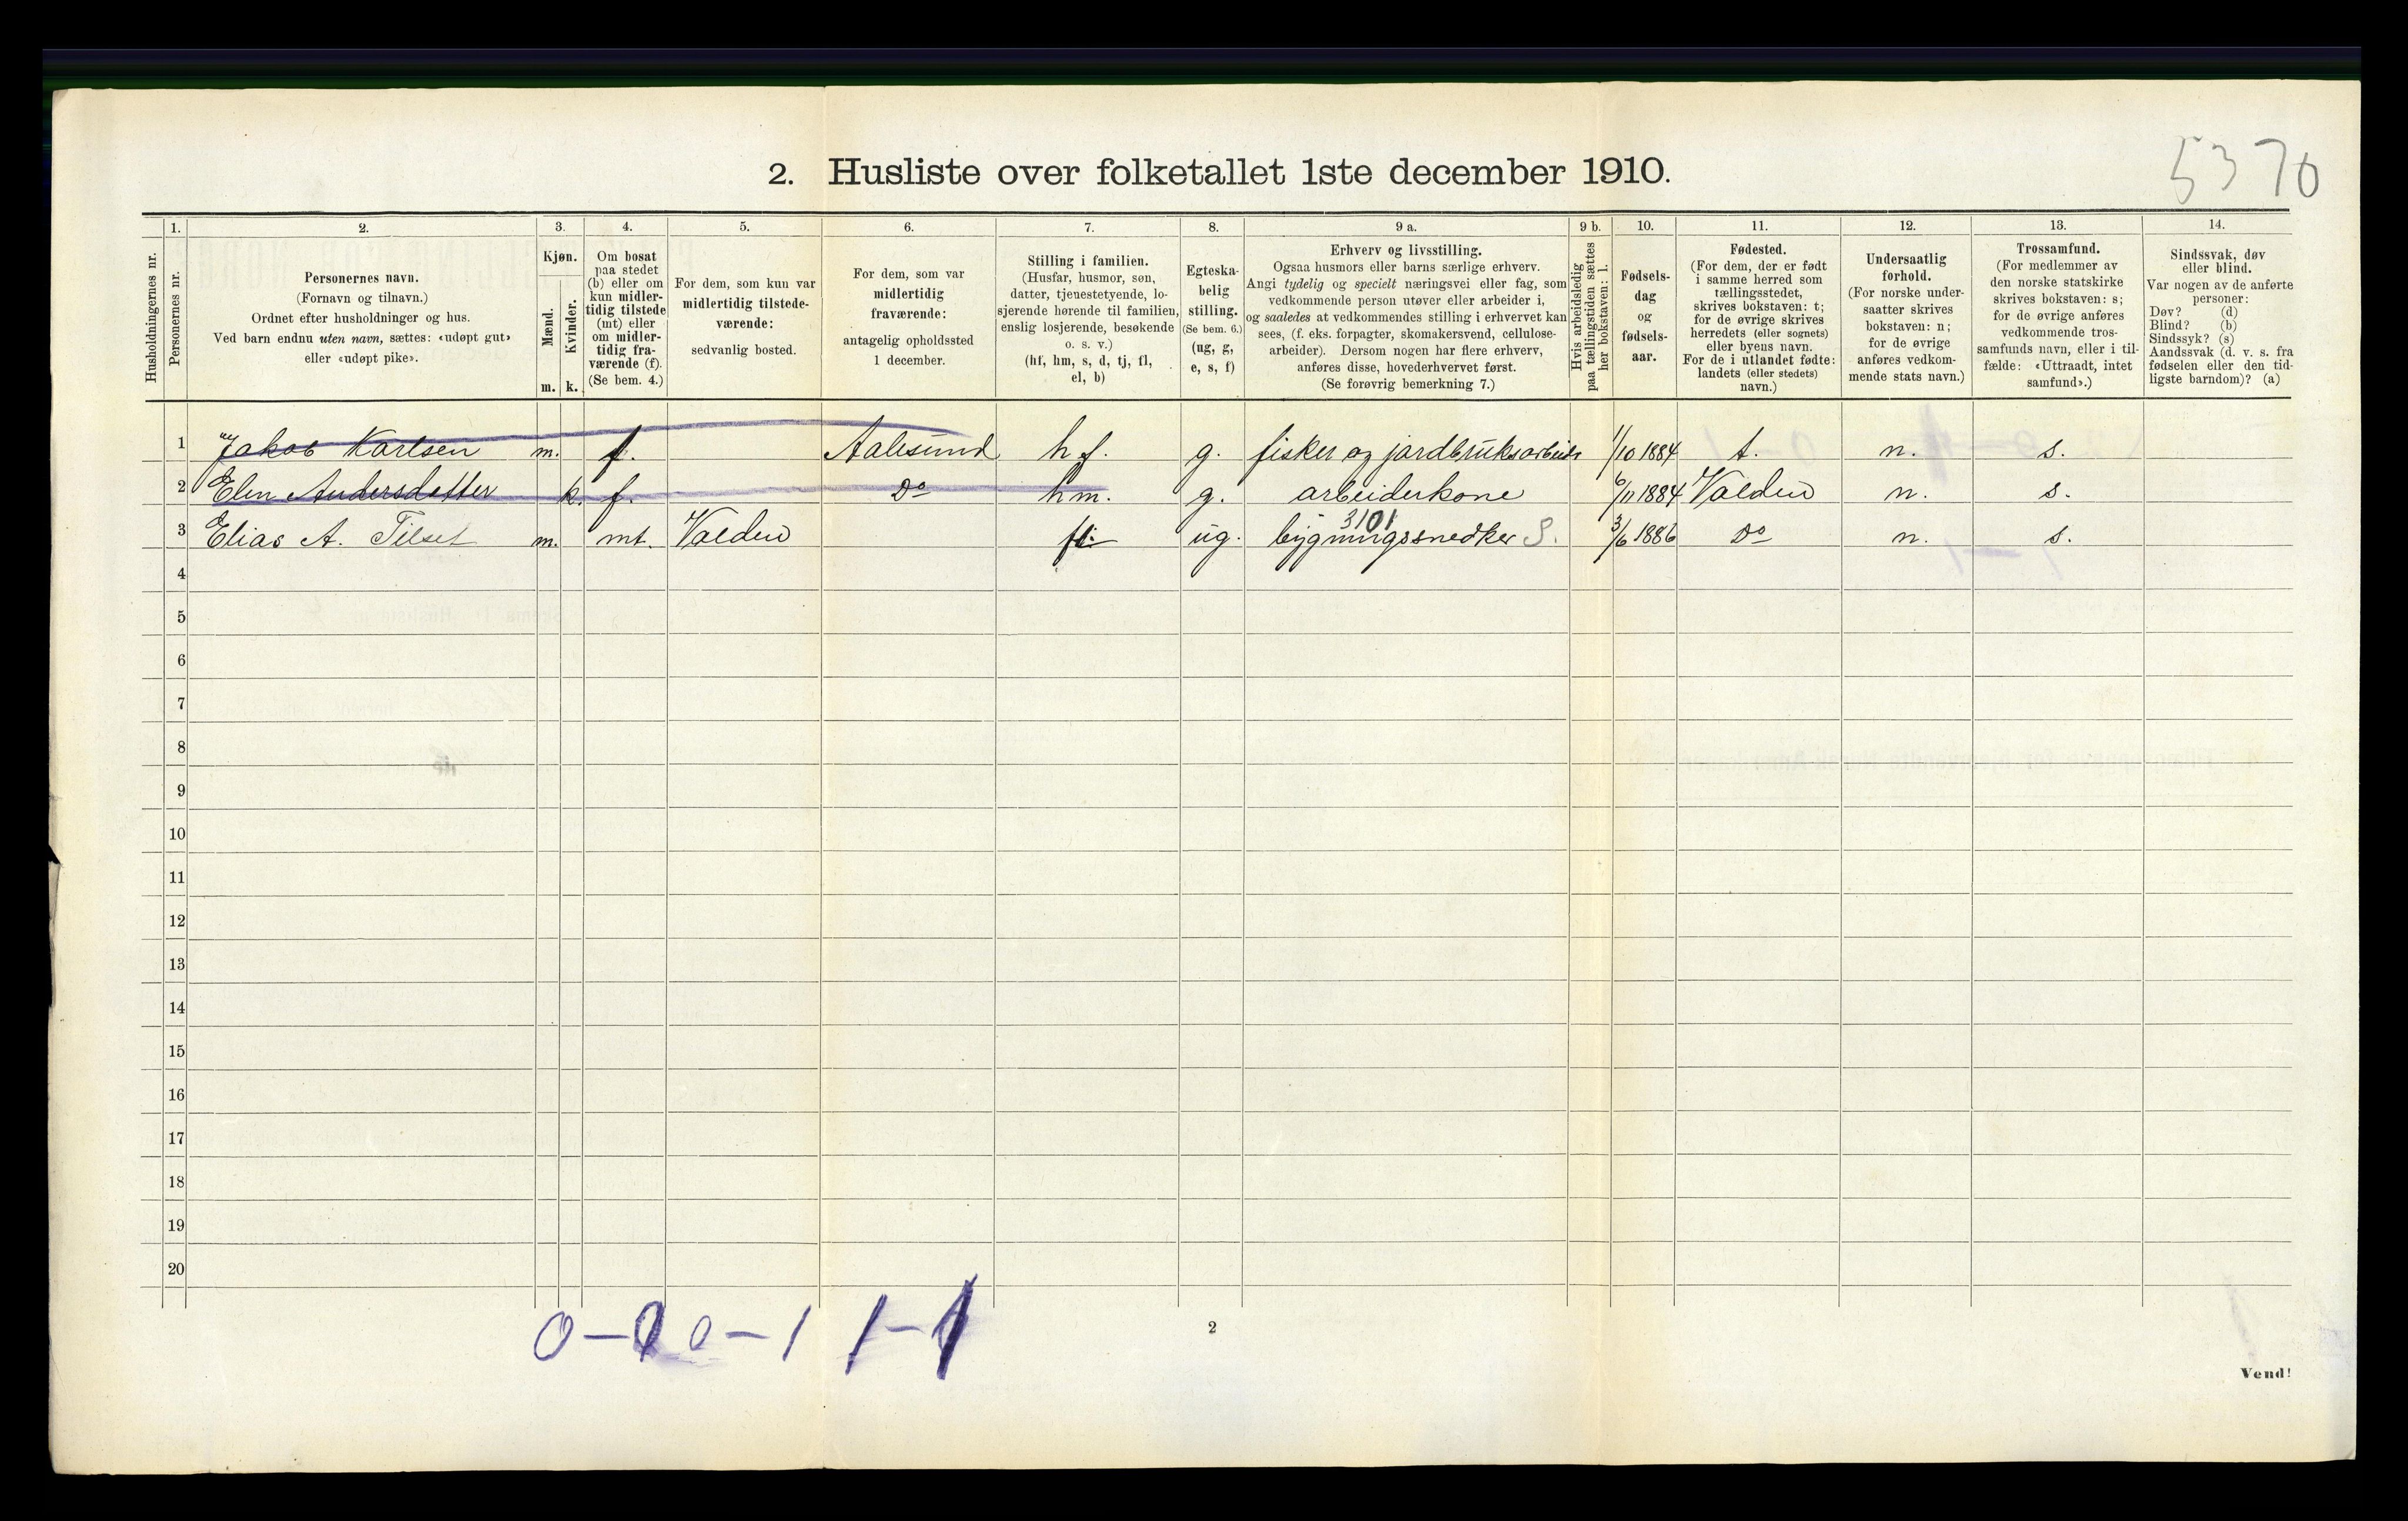 5370
2. Husliste over folketallet 1ste december 1910.
Husholdningernes nr.
1.
Personernes nr.
2.
Personernes navn.
(Fornavn og tilnavn.)
Ordnet efter husholdninger og hus.
Ved barn endnu uten navn, sættes: «udøpt gut»
eller «udøpt pike».
3.
Kjøn.
Mænd.
m.
Kvinder.
k.
4.
Om bosat
paa stedet
(b) eller om
kun midler-
tidig tilstede
(mt) eller
om midler-
tidig fra-
værende (f).
(Se bem. 4.)
5.
For dem, som kun var
midlertidig tilstede-
værende:
sedvanlig bosted.
6.
For dem, som var
midlertidig
fraværende:
antagelig opholdssted
1 december.
7.
Stilling i familien.
(Husfar, husmor, søn,
datter, tjenestetyende, lo-
sjerende hørende til familien,
enslig losjerende, besøkende
o. s. v.)
(hf, hm, s, d, tj, fl,
el, b)
8.
Egteska-
belig
stilling.
(Se bem. 6.)
(ug, g,
e, s, f)
9 a.
Erhverv og livsstilling.
Ogsaa husmors eller barns særlige erhverv.
Angi tydelig og specielt næringsvei eller fag, som
vedkommende person utøver eller arbeider i,
og saaledes at vedkommendes stilling i erhvervet kan
sees, (f. eks. forpagter, skomakersvend, cellulose-
arbeider). Dersom nogen har flere erhverv,
anføres disse, hovederhvervet først.
(Se forøvrig bemerkning 7.)
9 b.
Hvis arbeidsledig
paa tællingstiden sættes
her bokstaven: l.
10.
Fødsels-
dag
og
fødsels-
aar.
11.
Fødested.
(For dem, der er født
i samme herred som
tællingsstedet,
skrives bokstaven: t;
for de øvrige skrives
herredets (eller sognets)
eller byens navn.
For de i utlandet fødte:
landets (eller stedets)
navn.)
12.
Undersaatlig
forhold.
(For norske under-
saatter skrives
bokstaven: n;
for de øvrige
anføres vedkom-
mende stats navn.)
13.
Trossamfund.
(For medlemmer av
den norske statskirke
skrives bokstaven: s;
for de øvrige anføres
vedkommende tros-
samfunds navn, eller i til-
fælde: «Uttraadt, intet
samfund».)
14.
Sindssvak, døv
eller blind.
Var nogen av de anførte
personer:
Døv? (d)
Blind? (b)
Sindssyk? (s)
Aandssvak (d. v. s. fra
fødselen eller den tid-
ligste barndom)? (a)
1 Jakob Karlsen m. f. Aalesund hf. g. fisker og jardbruksarbeider 1/10 1884 t. n. s.
2 Elen Andersdatter k. f. Do hm. g. arbeiderkone 6/11 1884 Volden n. s.
3101
3 Elias A. Tilset m. mt. Volden ug. bygningssnedker S. 3/6 1886 Do n. s.
4
5
6
7
8
9
10
11
12
13
14
15
16
17
18
19
20
0-0 0-1 1-1
2
Vend!